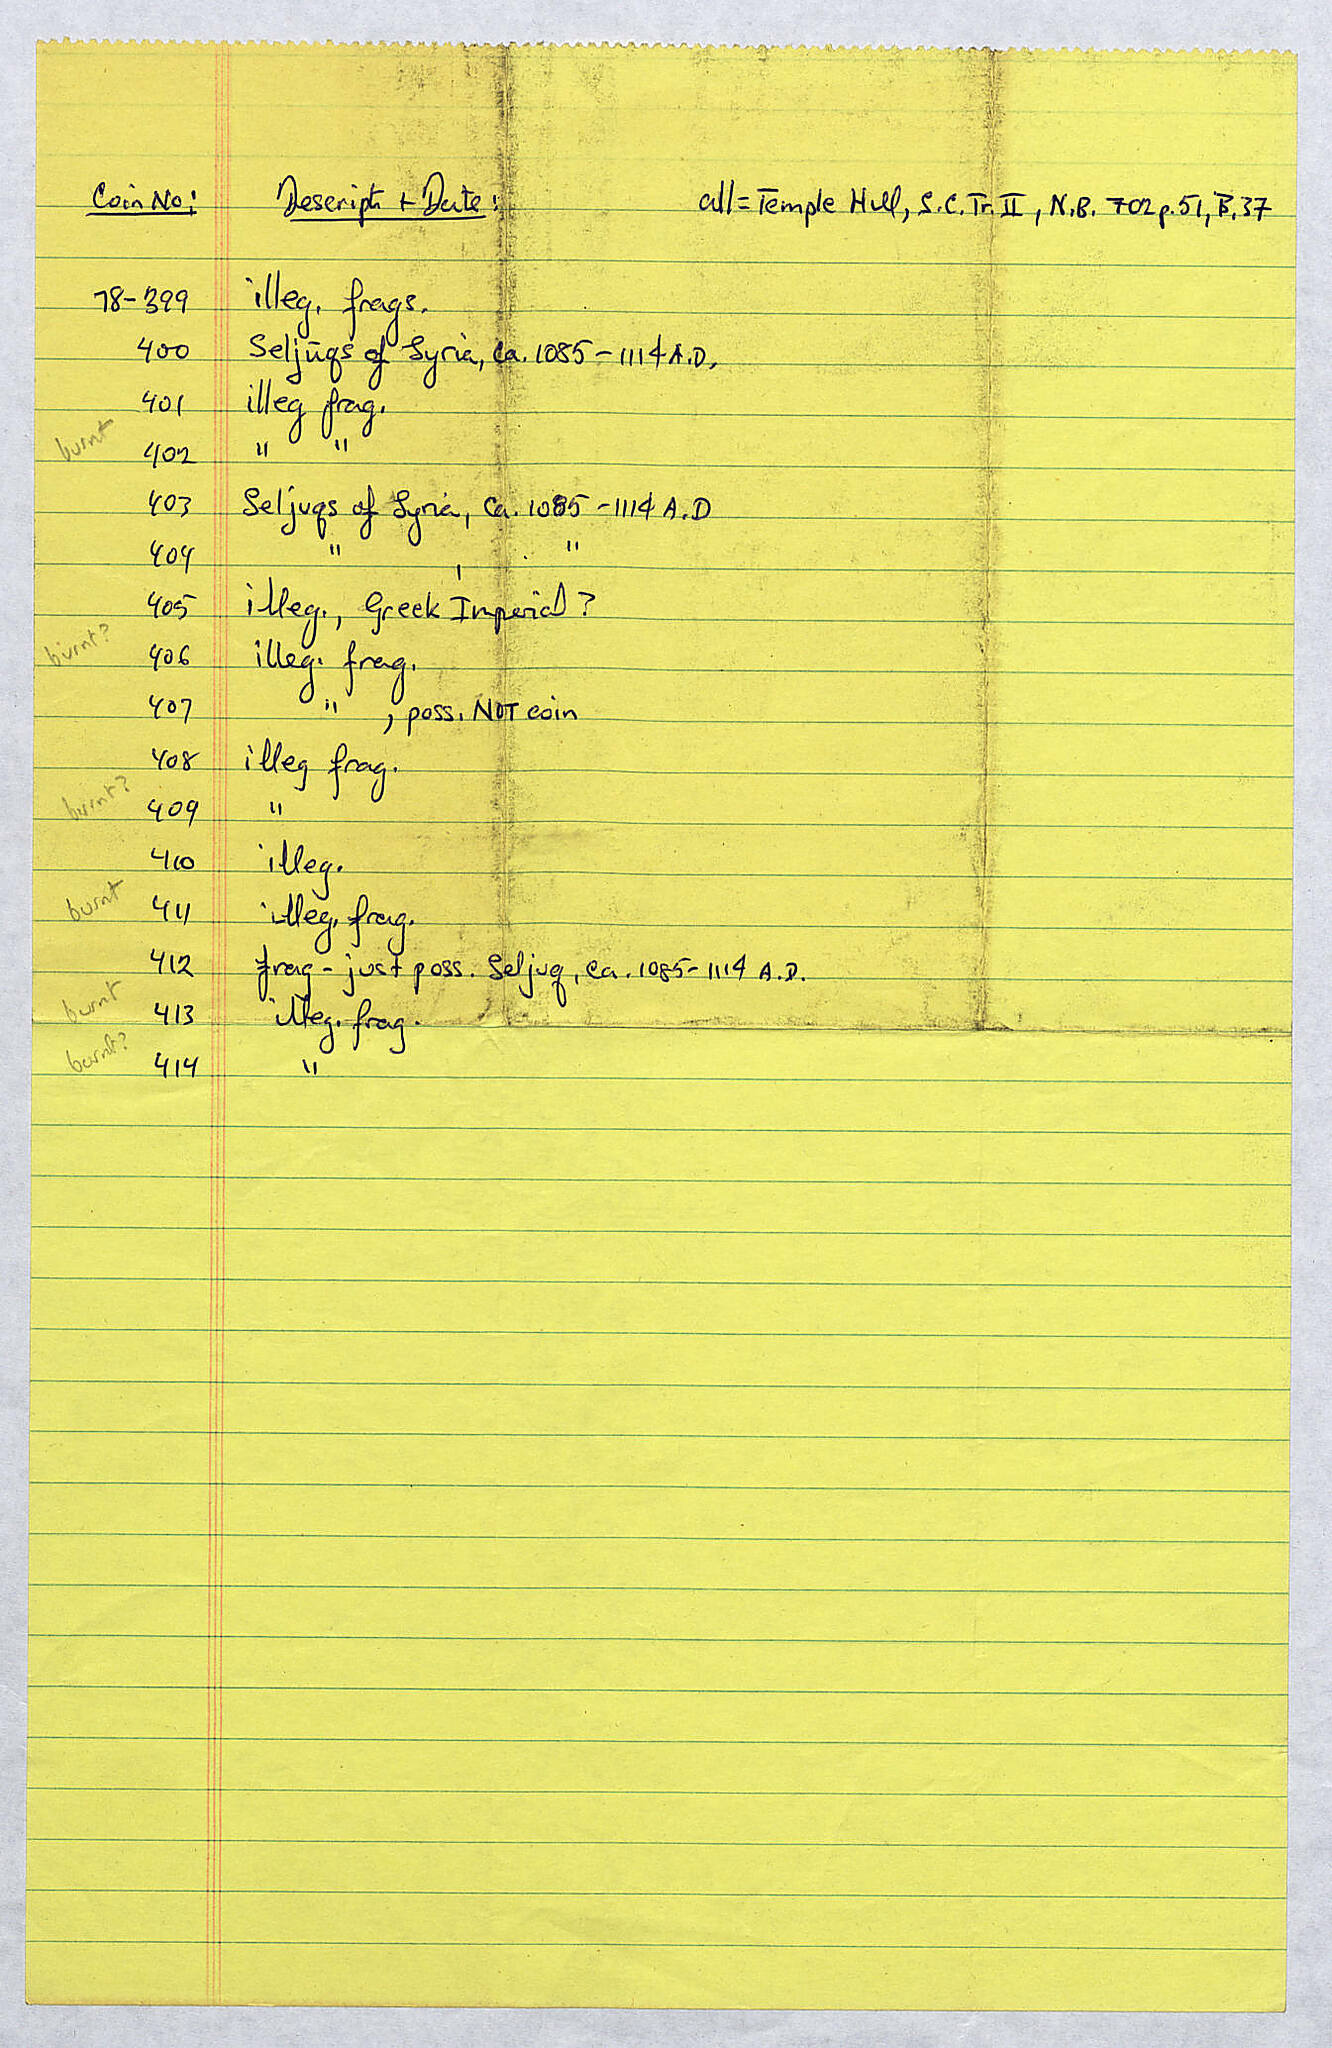 Coin No: Descript + Date: all = Temple Hill, S.C. Tr. II, N.B. 702 p. 51, B. 37
78-399 illeg. frags.
400 Seljūqs of Syria, ca. 1085-1114 A.D.
401 illeg frag.
burnt 402 " "
403 Seljuqs of Syria, ca. 1085-1114 A.D
404 " , "
405 illeg., Greek Imperial?
burnt? 406 illeg. frag.
407 " , poss. NOT coin
408 illeg frag.
burnt? 409 "
410 illeg.
burnt 411 illeg. frag.
412 frag - just poss. Seljuq, ca. 1085-1114 A.D.
burnt 413 illeg. frag.
burnt? 414 "